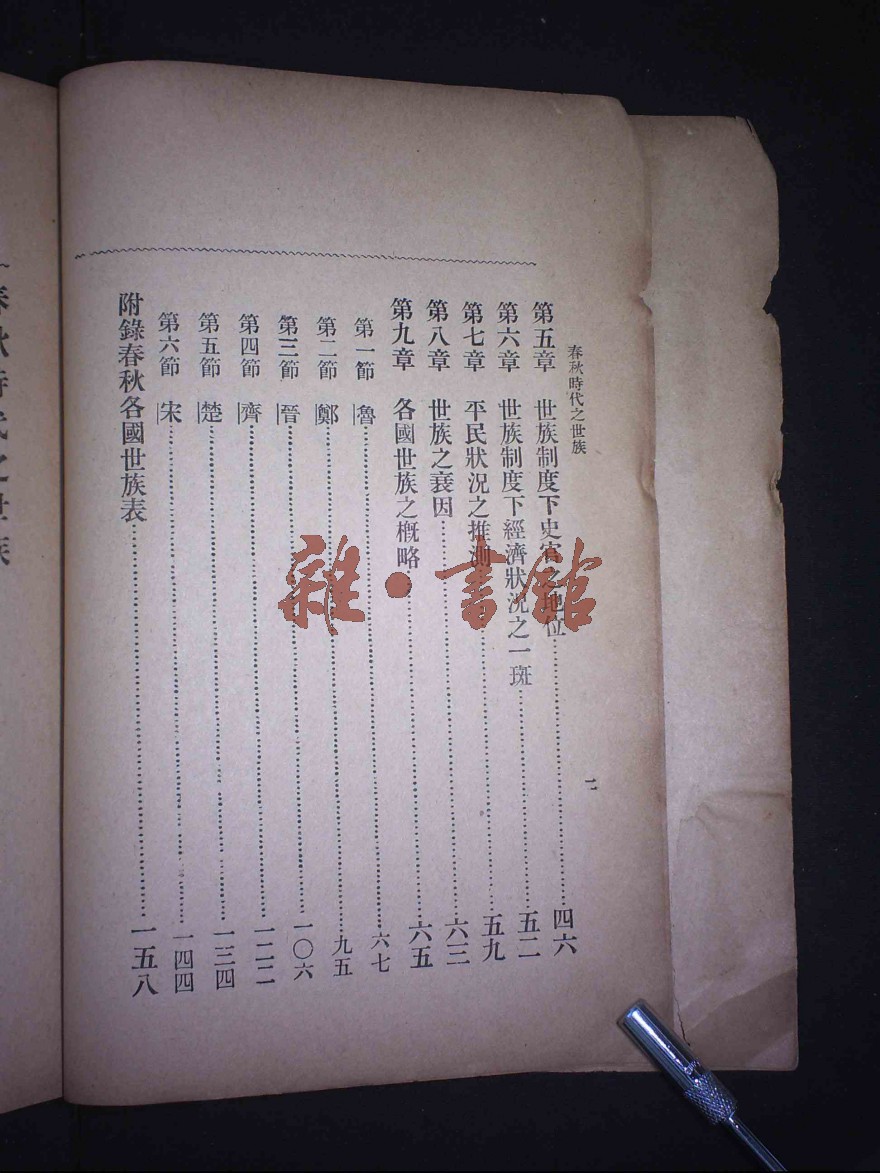 春秋時代之世族
二
第五章　世族制度下史官之地位……四六
第六章　世族制度下經濟狀況之一斑……五二
第七章　平民狀況之推測……五九
第八章　世族之衰因……六三
第九章　各國世族之概略……六五
第一節　魯……六七
第二節　鄭……九五
第三節　晉……一〇六
第四節　齊……一二二
第五節　楚……一三四
第六節　宋……一四四
附錄春秋各國世族表……一五八
春秋時代之世族
雜·書館